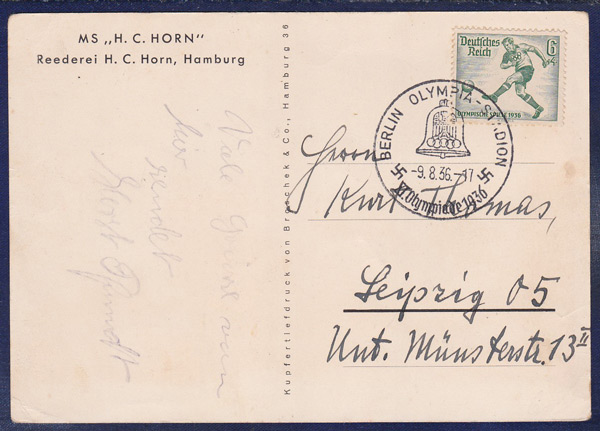 MS „H. C. HORN"
Reederei H. C. Horn, Hamburg
Viele Grüße von
Horst
Kupfertiefdruck von Broschek & Co., Hamburg 36
Deutsches
Reich
6
OLYMPISCHE SPIELE 1936
BERLIN OLYMPIA-STADION
-9.8.36.-17
XI. Olympiade 1936
Herrn
Kurt Thomas,
Leipzig O5
Unt. Münsterstr. 13 II